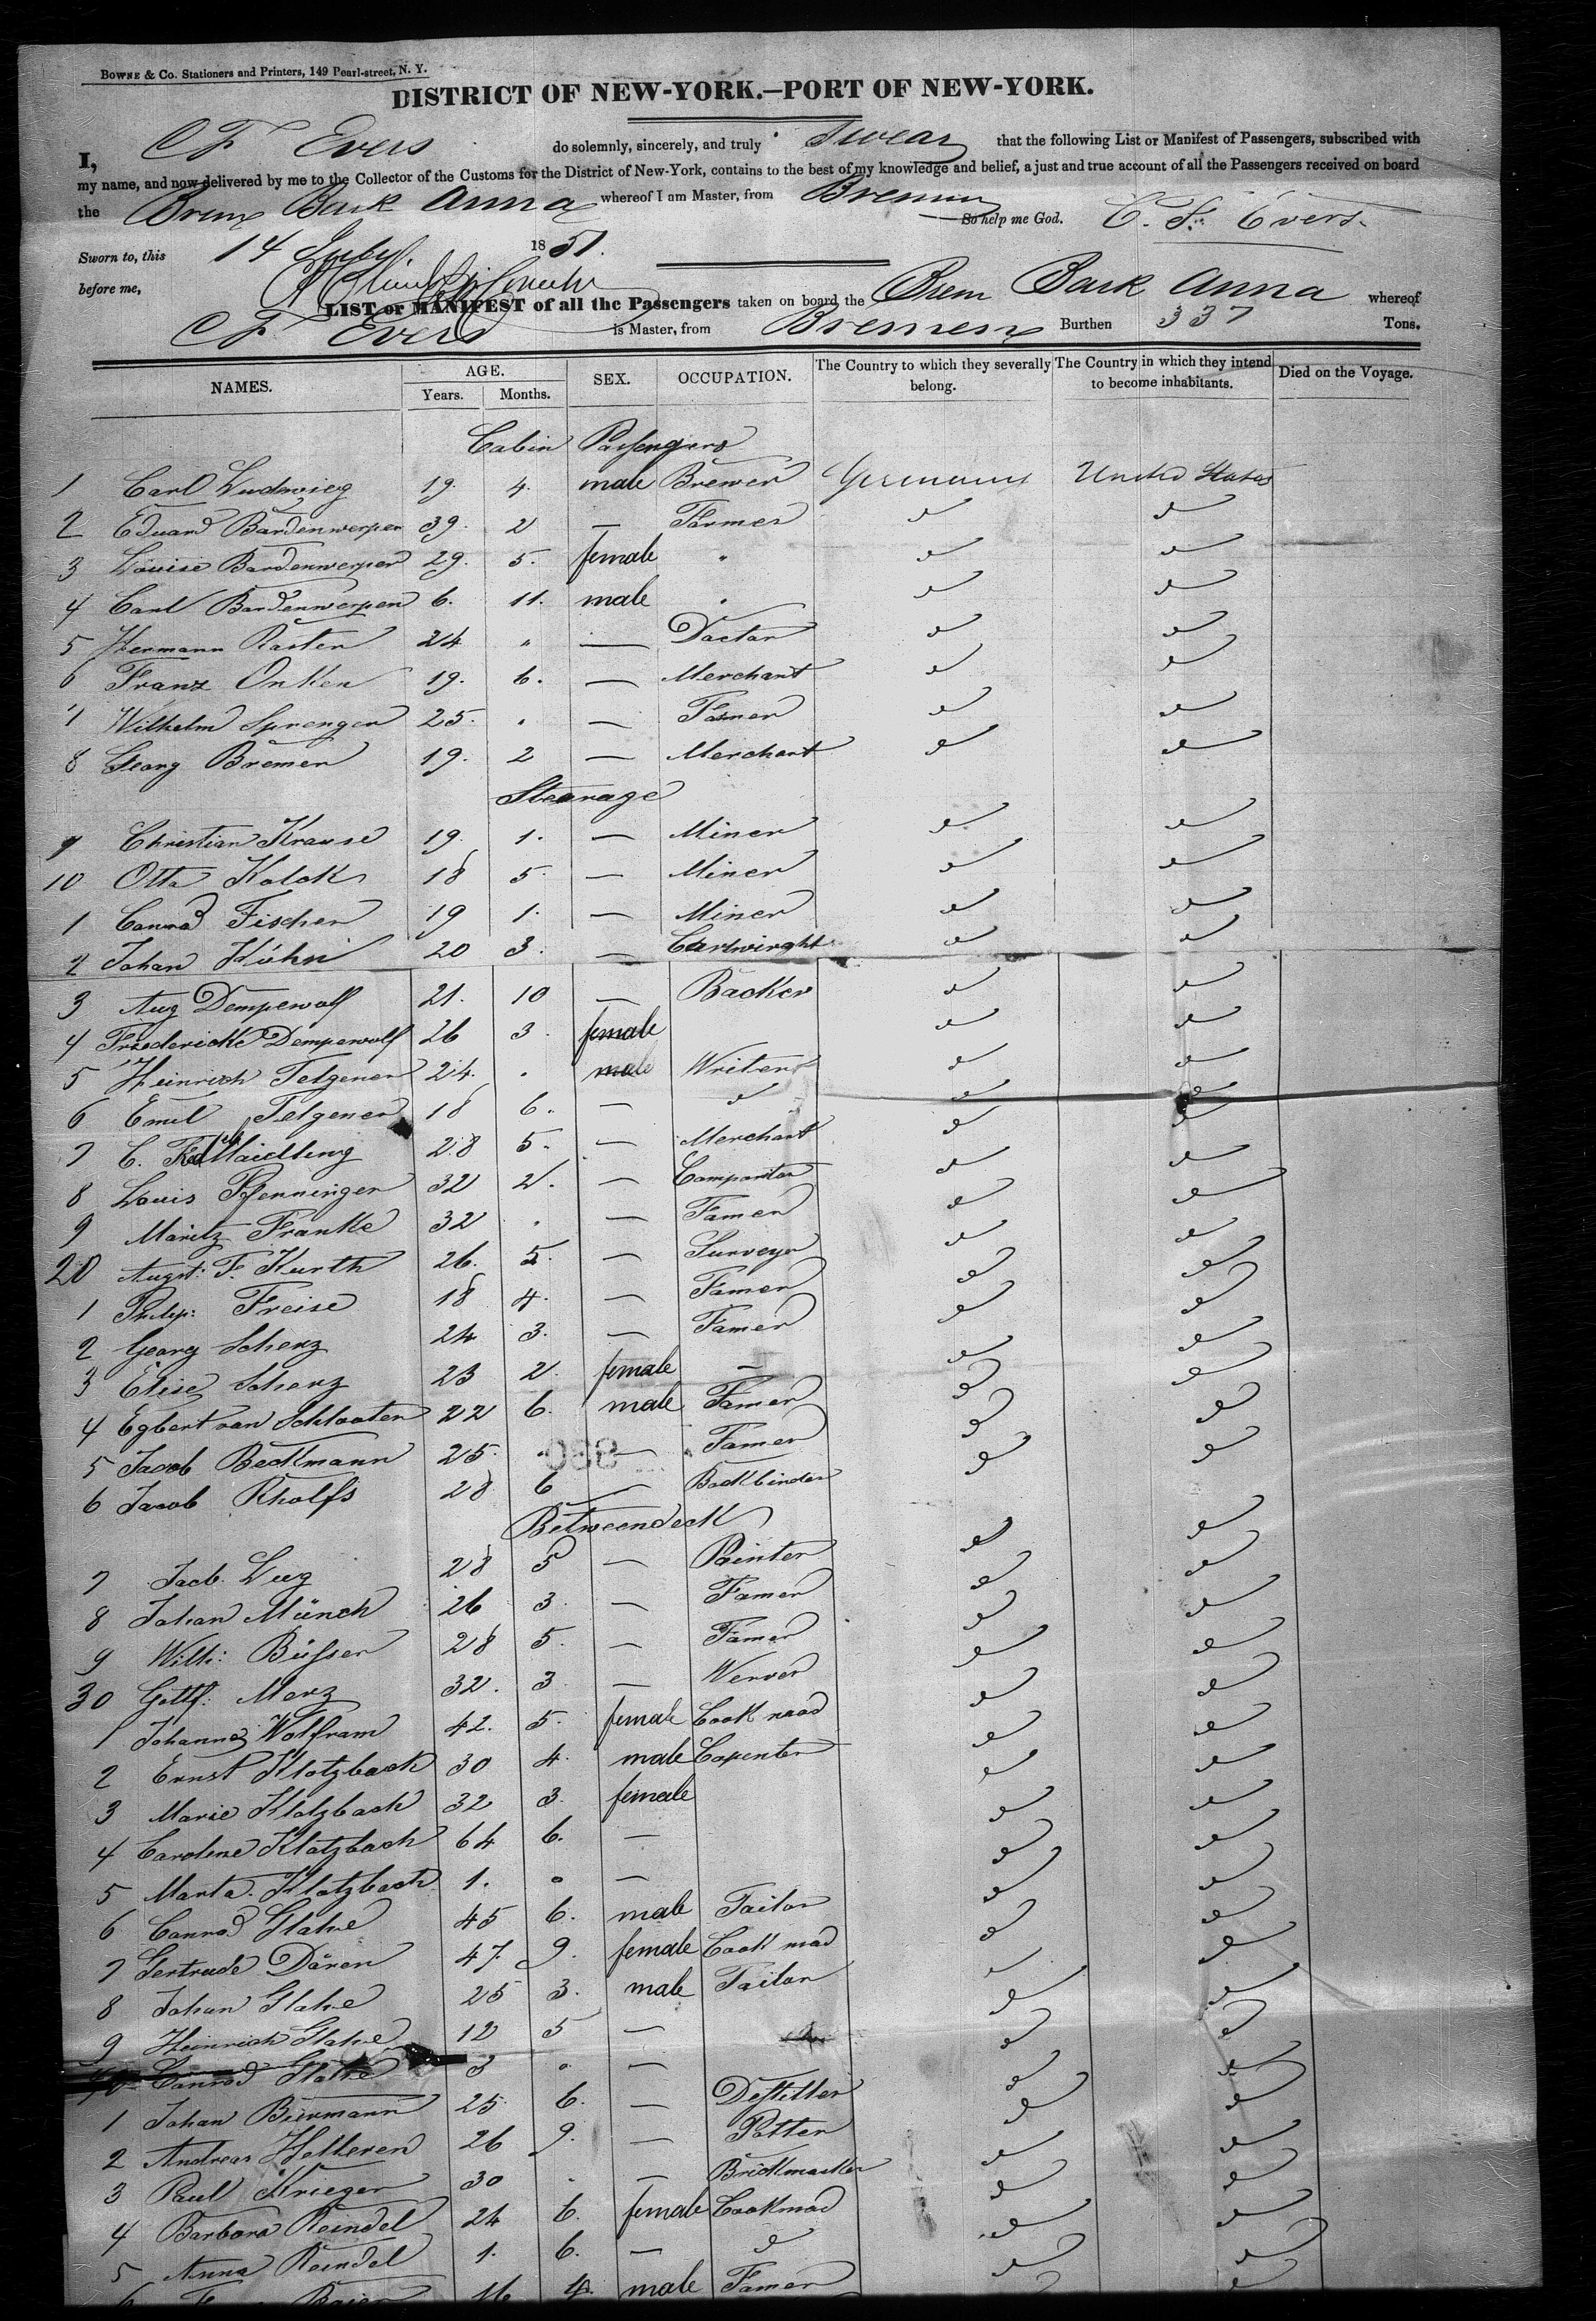 BOWNE & Co. Stationers and Printers, 149 Pearl-street, N. Y.
DISTRICT OF NEW-YORK.—PORT OF NEW-YORK.
I, C F Evers do solemnly, sincerely, and truly Swear that the following List or Manifest of Passengers, subscribed with
my name, and now delivered by me to the Collector of the Customs for the District of New-York, contains to the best of my knowledge and belief, a just and true account of all the Passengers received on board
the Brem Bark Anna whereof I am Master, from Bremen
So help me God. C. F. Evers.
Sworn to, this 14 July 1851.
before me,
LIST or MANIFEST of all the Passengers taken on board the Brem Bark Anna whereof
C F Evers is Master, from Bremen Burthen 337 Tons.
NAMES. AGE. Years. Months. SEX. OCCUPATION. The Country to which they severally belong. The Country in which they intend to become inhabitants. Died on the Voyage.
Cabin Passengers
1 Carl Ludwieg 19. 4. male Brewer Germany United States
2 Eduard Bardenwerper 39. 2 — Farmer do do
3 Louise Bardenwerper 29. 5. female " do do
4 Carl Bardenwerper 6. 11. male " do do
5 Hermann Raster 24 " — Doctor do do
6 Franz Onken 19. 6. — Merchant do do
7 Wilhelm Sprenger 25. " — Famer do do
8 Georg Bremer 19. 2 — Merchant do do
Stearage
9 Christian Krause 19. 1. — Miner do do
10 Otto Kolck 18 5. — Miner do do
1 Conrad Fischer 19 1. — Miner do do
2 Johan Kühn 20 3. — Cartwirght do do
3 Aug Dempewolf 21. 10 — Backer do do
4 Friedericke Dempewolf 26 3. female do do
5 Heinrich Telgener 24. . male Writer do do
6 Emil Telgener 18 6. — do do do
7 C. Maidling 28 5. — Merchant do do
8 Louis Pfenninger 32 2. — Compositor do do
9 Moritz Franke 32 . — Famer do do
20 Augst. F. Kurth 26. 5. — Surveyor do do
1 Philip: Freise 18 4. — Famer do do
2 Georg Scherz 24 3. — Famer do do
3 Elise Scherz 23 2. female — do do
4 Egbert van Schlooten 22 6. male Famer do do
5 Jacob Beckmann 25. . — Famer do do
6 Jacob Rholfs 28 6 — Bookbinder do do
Betweendeck
7 Jacb. Lug 28 5 — Painter do do
8 Johan Münch 26 3. — Famer do do
9 Wilh: Büsser 28 5. — Famer do do
30 Gottf: Merz 32. 3 — Werver do do
1 Johanna Wolfram 42. 5. female Cook maad do do
2 Ernst Klotzbach 30 4. male Capenter do do
3 Marie Klotzbach 32 3. female do do
4 Carolene Klotzbach 64 6. — do do
5 Marta. Klotzbach 1. . — do do
6 Conrad Glahe 45 6. male Tailor do do
7 Gertrude Dären 47. 9. female Cook mad do do
8 Johan Glahe 25 3. male Tailor do do
9 Heinrich Glahe 12 5 — do do
40 Conrad Glahe 3 . — do do
1 Johan Biermann 25. 6. — Destiller do do
2 Andreas Helleren 26 9. — Potter do do
3 Paul Krieger 30 . — Brickmacker do do
4 Barbara Reindel 24 6. female Cookmad do do
5 Anna Reindel 1. 6. — do do do
6 Baier 16 4. male Famer do do